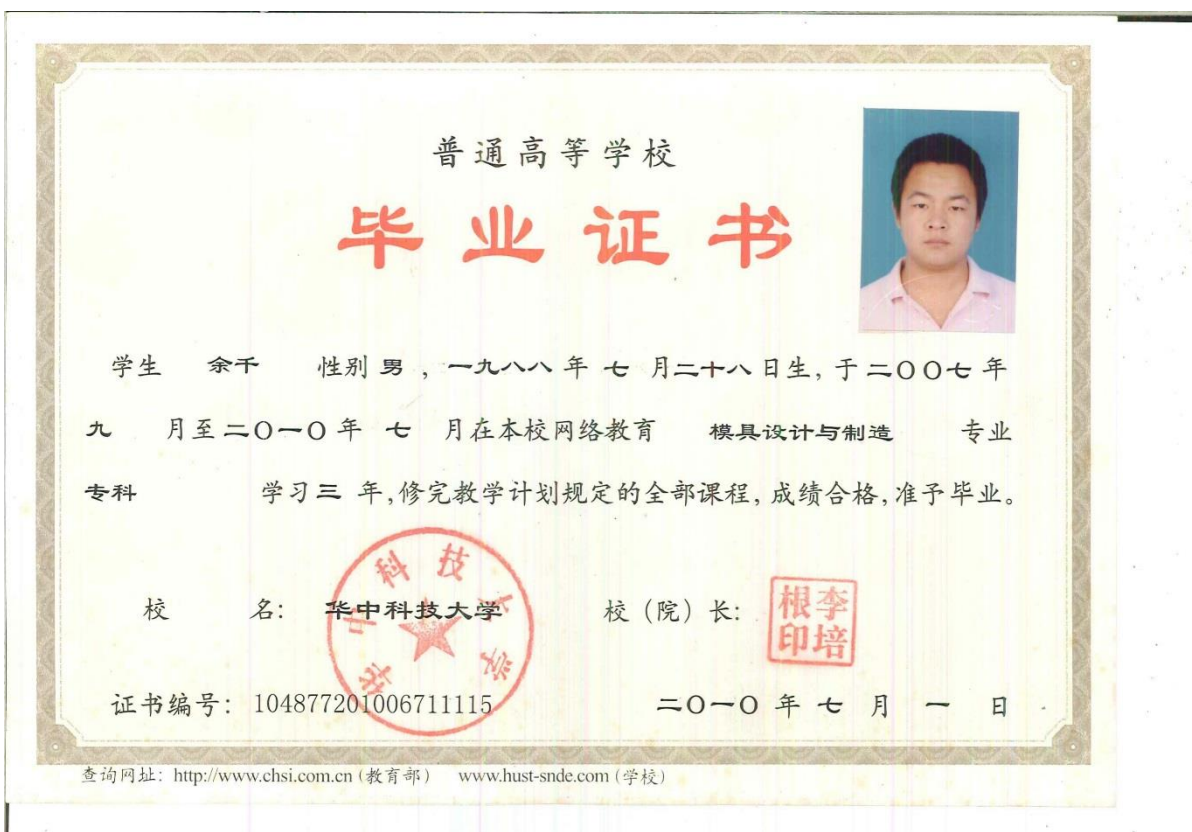 普通高等学校
毕业证书
学生 余千 性别 男 , 一九八八 年 七 月二十八日生, 于二〇〇七年
九 月至二〇一〇年 七 月在本校网络教育 模具设计与制造 专业
专科 学习三 年,修完教学计划规定的全部课程,成绩合格,准予毕业。
校 名: 华中科技大学 校(院)长:
华中科技大学
李培根印
证书编号: 104877201006711115 二〇一〇年 七 月 一 日
查询网址: http://www.chsi.com.cn(教育部) www.hust-snde.com(学校)